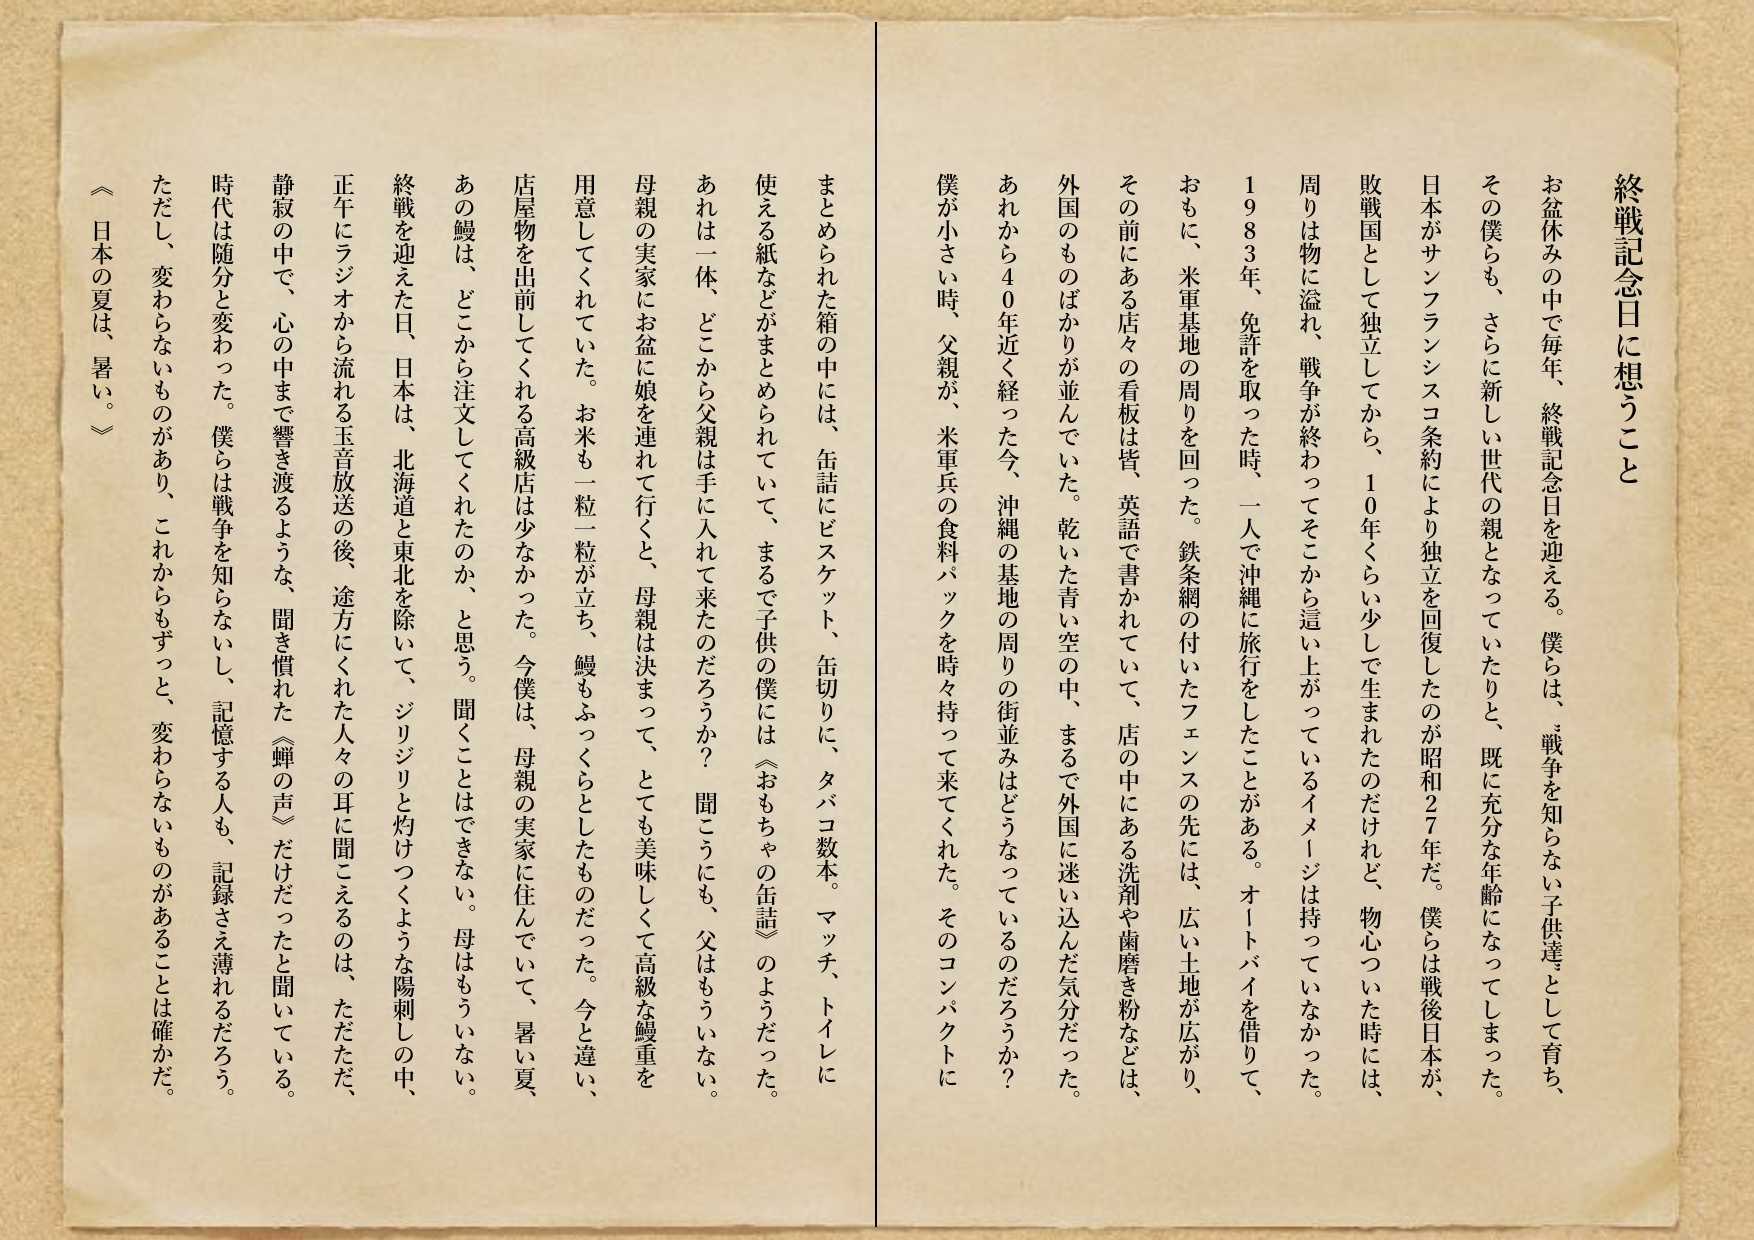 終戦記念日に想うこと
お盆休みの中で毎年、終戦記念日を迎える。僕らは、〝戦争を知らない子供達〟として育ち、
その僕らも、さらに新しい世代の親となっていたりと、既に充分な年齢になってしまった。
日本がサンフランシスコ条約により独立を回復したのが昭和２７年だ。僕らは戦後日本が、
敗戦国として独立してから、１０年くらい少しで生まれたのだけれど、物心ついた時には、
周りは物に溢れ、戦争が終わってそこから這い上がっているイメージは持っていなかった。
１９８３年、免許を取った時、一人で沖縄に旅行をしたことがある。オートバイを借りて、
おもに、米軍基地の周りを回った。鉄条網の付いたフェンスの先には、広い土地が広がり、
その前にある店々の看板は皆、英語で書かれていて、店の中にある洗剤や歯磨き粉などは、
外国のものばかりが並んでいた。乾いた青い空の中、まるで外国に迷い込んだ気分だった。
あれから４０年近く経った今、沖縄の基地の周りの街並みはどうなっているのだろうか？
僕が小さい時、父親が、米軍兵の食料パックを時々持って来てくれた。そのコンパクトに
まとめられた箱の中には、缶詰にビスケット、缶切りに、タバコ数本。マッチ、トイレに
使える紙などがまとめられていて、まるで子供の僕には《おもちゃの缶詰》のようだった。
あれは一体、どこから父親は手に入れて来たのだろうか？　聞こうにも、父はもういない。
母親の実家にお盆に娘を連れて行くと、母親は決まって、とても美味しくて高級な鰻重を
用意してくれていた。お米も一粒一粒が立ち、鰻もふっくらとしたものだった。今と違い、
店屋物を出前してくれる高級店は少なかった。今僕は、母親の実家に住んでいて、暑い夏、
あの鰻は、どこから注文してくれたのか、と思う。聞くことはできない。母はもういない。
終戦を迎えた日、日本は、北海道と東北を除いて、ジリジリと灼けつくような陽刺しの中、
正午にラジオから流れる玉音放送の後、途方にくれた人々の耳に聞こえるのは、ただただ、
静寂の中で、心の中まで響き渡るような、聞き慣れた《蝉の声》だけだったと聞いている。
時代は随分と変わった。僕らは戦争を知らないし、記憶する人も、記録さえ薄れるだろう。
ただし、変わらないものがあり、これからもずっと、変わらないものがあることは確かだ。
《　日本の夏は、暑い。》